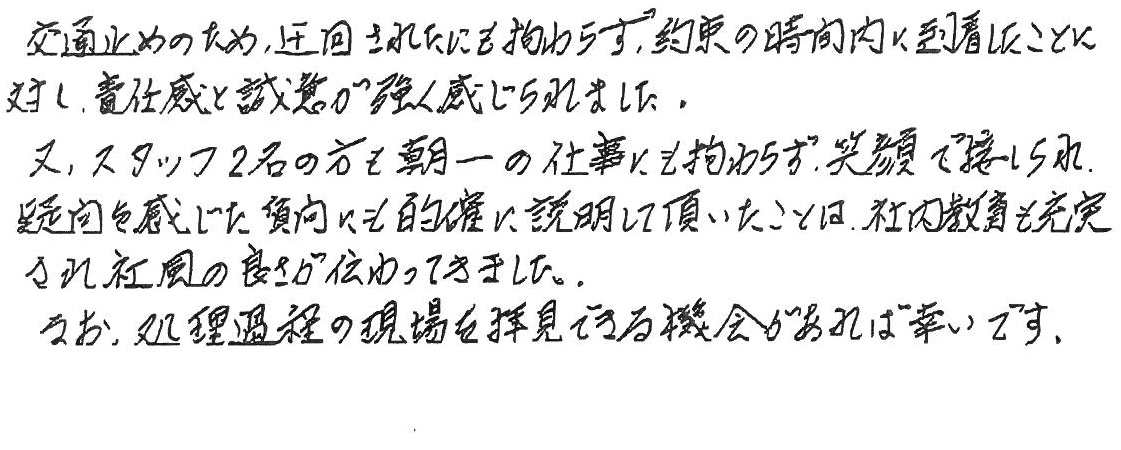 交通止めのため、迂回されたにも拘わらず、約束の時間内に到着したことに
対し、責任感と誠意が強く感じられました。
又、スタッフ2名の方も朝一の仕事にも拘わらず、笑顔で接しられ、
疑問を感じた質問にも的確に説明して頂いたことは、社内教育も充実
され社風の良さが伝わってきました。
なお、処理過程の現場を拝見できる機会があれば幸いです。